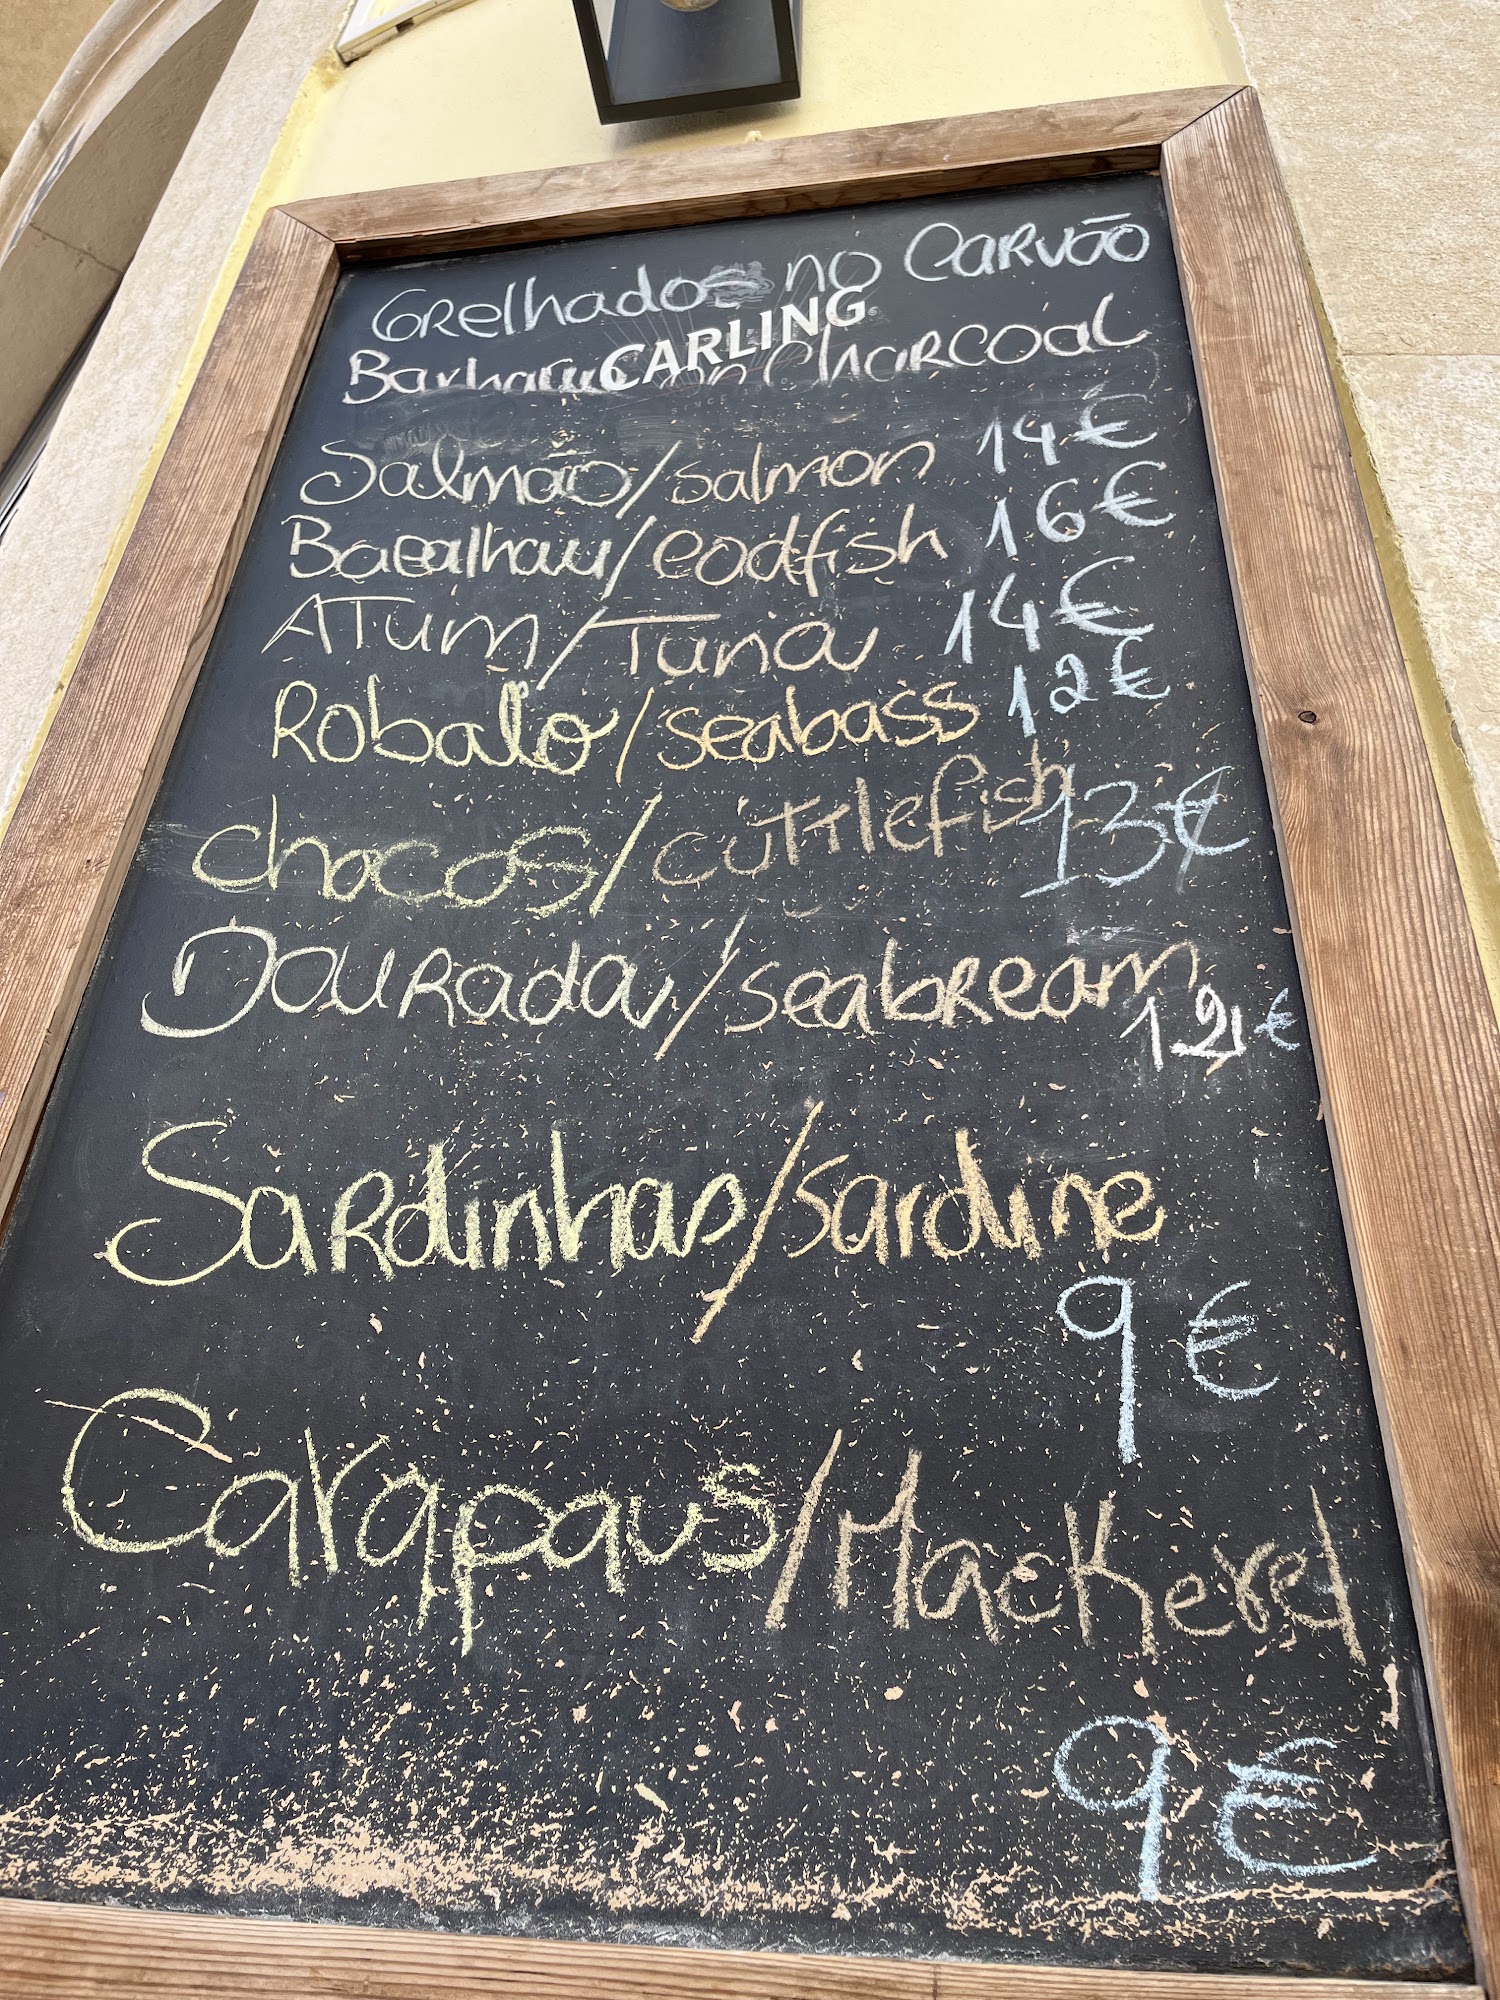 GRelhados no CARVÃO
CARLING
on CHARCOAL
SINCE
Salmão/salmon 14€
Bacalhau/codfish 16€
ATum/Tuna 14€
Robalo/seabass 12€
chocos/cuttlefish 13€
DouRada/seabream
12€
SaRdinhas/sardine
9€
Carapaus/Mackerel
9€